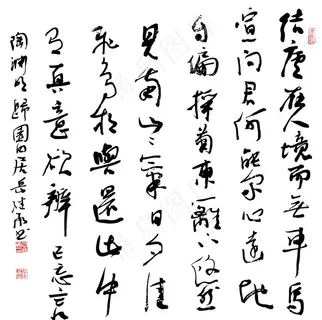 结庐在人境而无车马
喧问君何能尔心远地
自偏採菊东篱下悠然
见南山山气日夕佳
飞鸟相与还此中
有真意欲辩已忘言
陶渊明归园田居岳陆